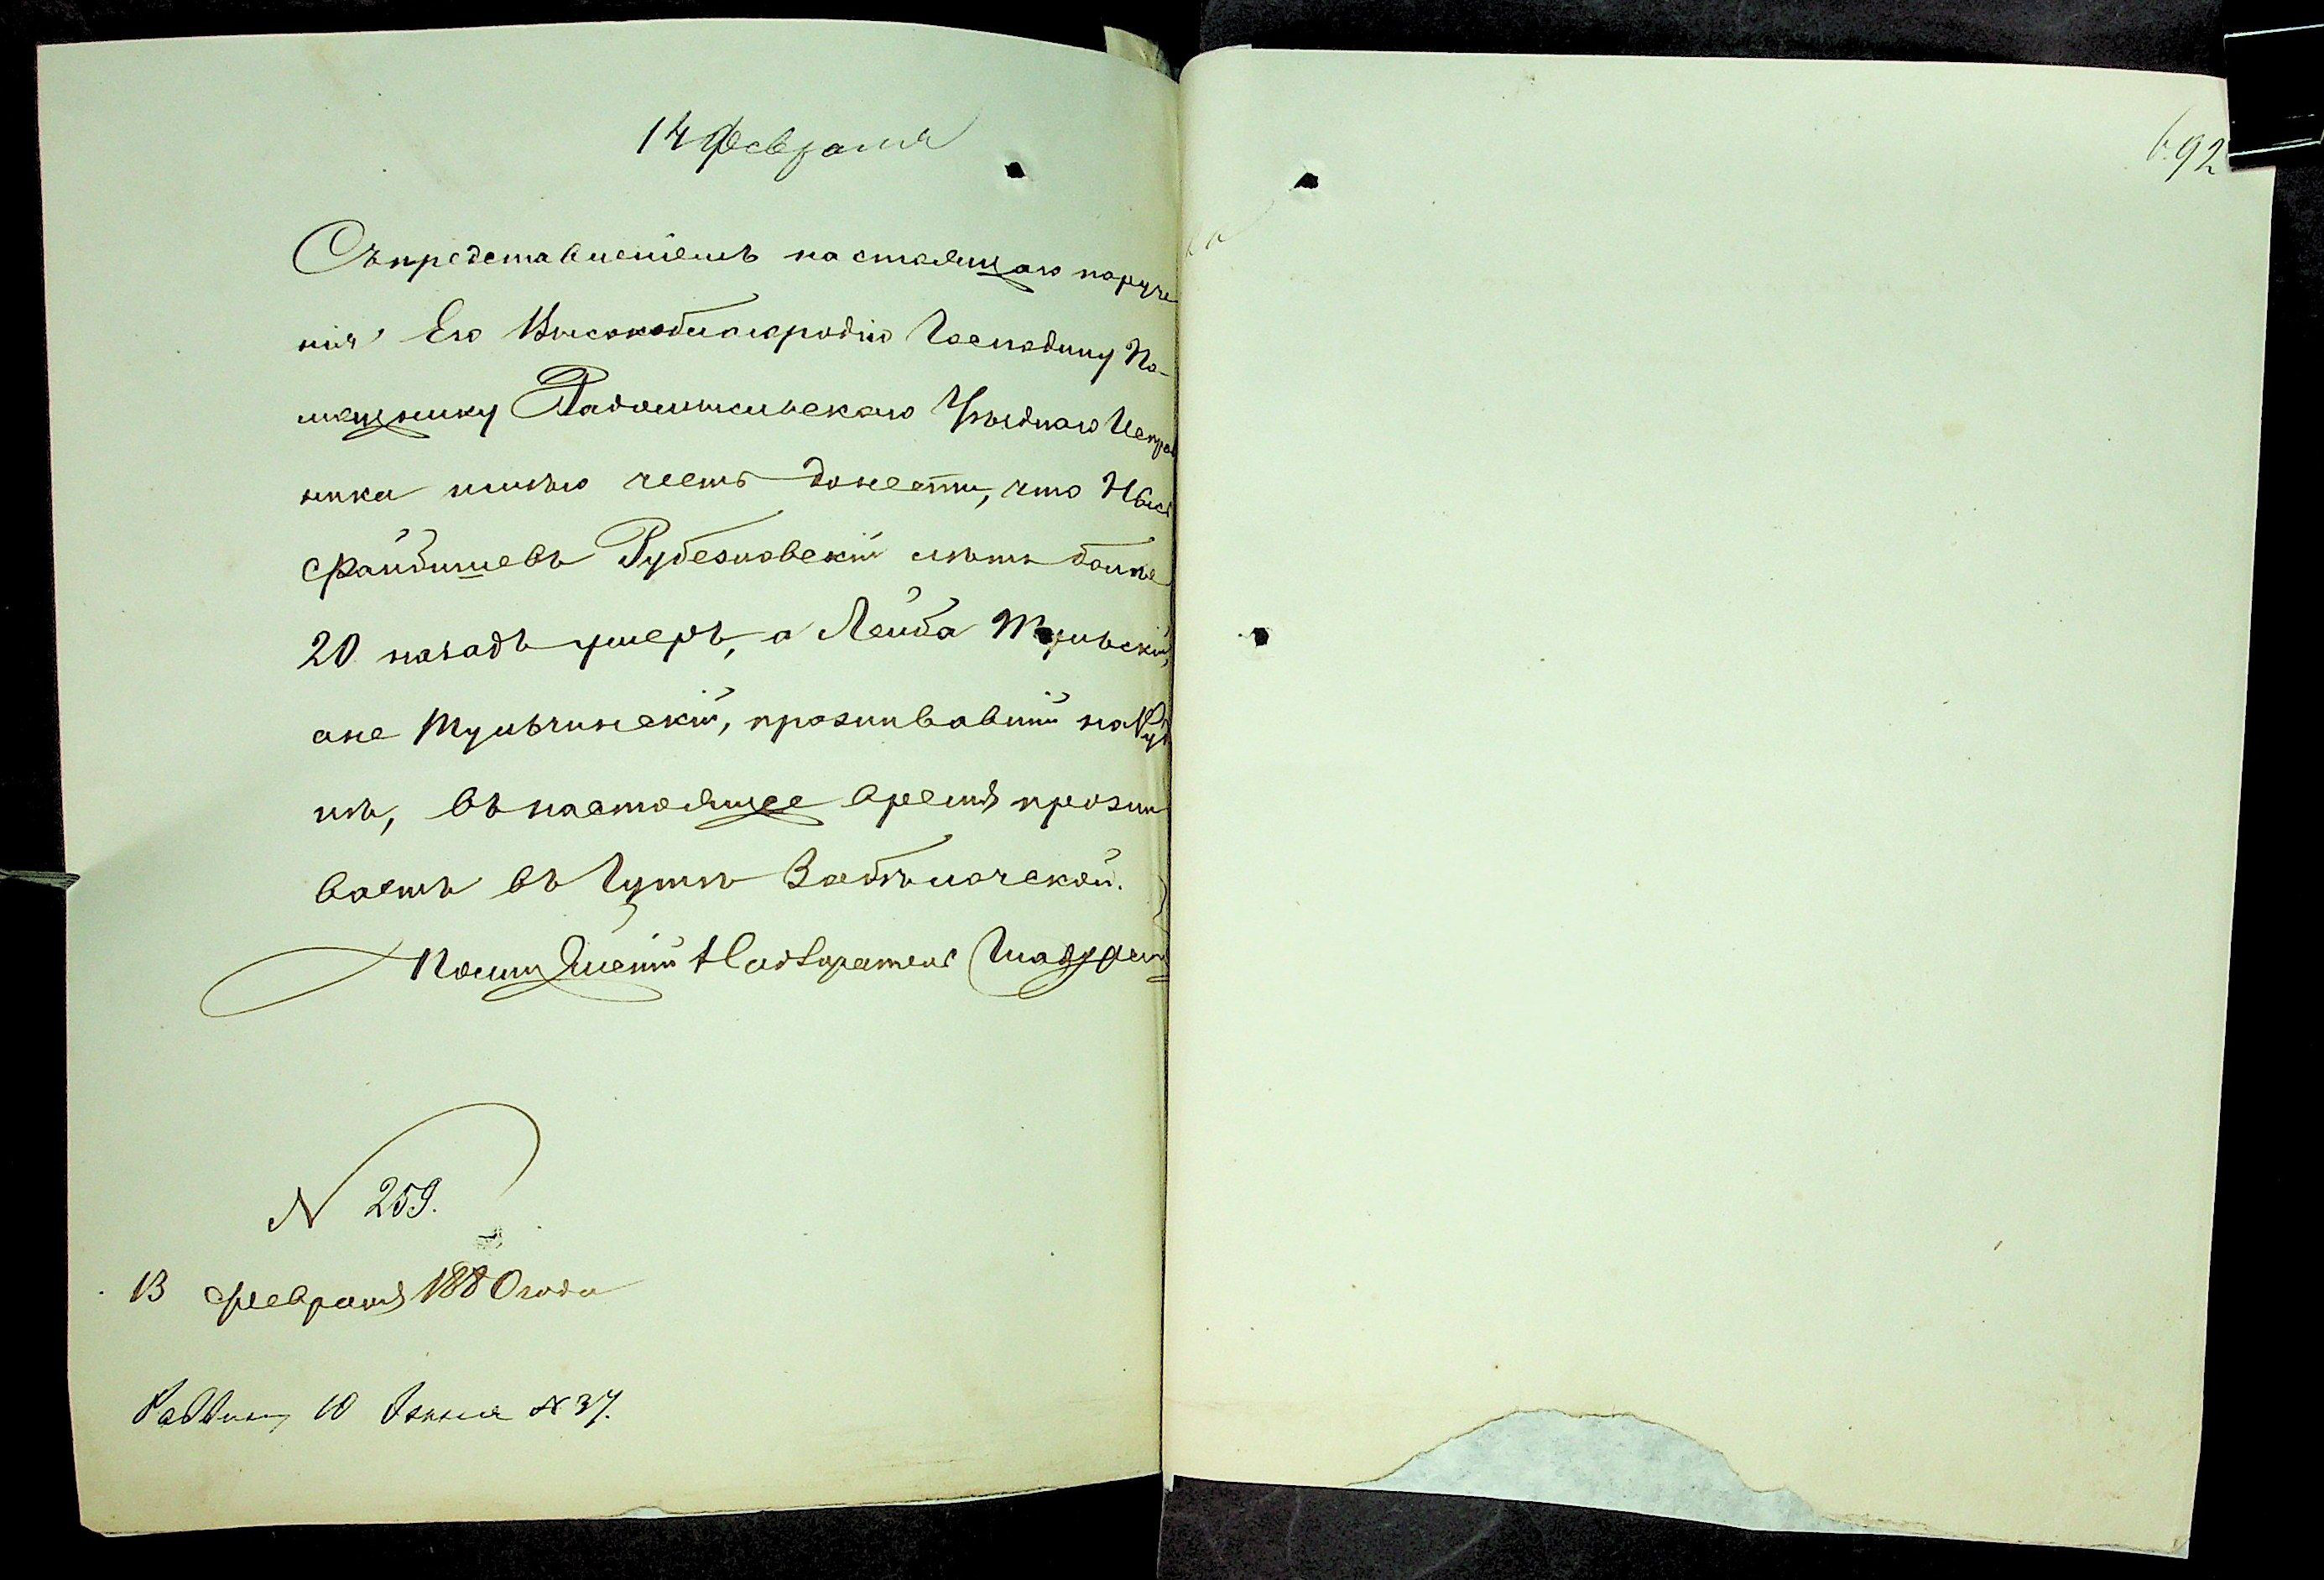 14 Февраля
692
Съ представленіемъ настоящаго поруче
нія Его Высокоблагородію Господину По-
мощнику Радомысльскаго Уѣзднаго Исправ
ника имѣю честь донести, что
Файбишевъ Рубезновскій лѣтъ болѣе
20 назадъ умеръ, а Лейба Тульскій,
оне Тульчинскій, проживавшій на
нѣ, въ настоящее время прожи
ваетъ въ Гутѣ Забѣлочской.
Полицейскій Надзиратель
N 259.
13 февраля 1880 года
10 N 37.